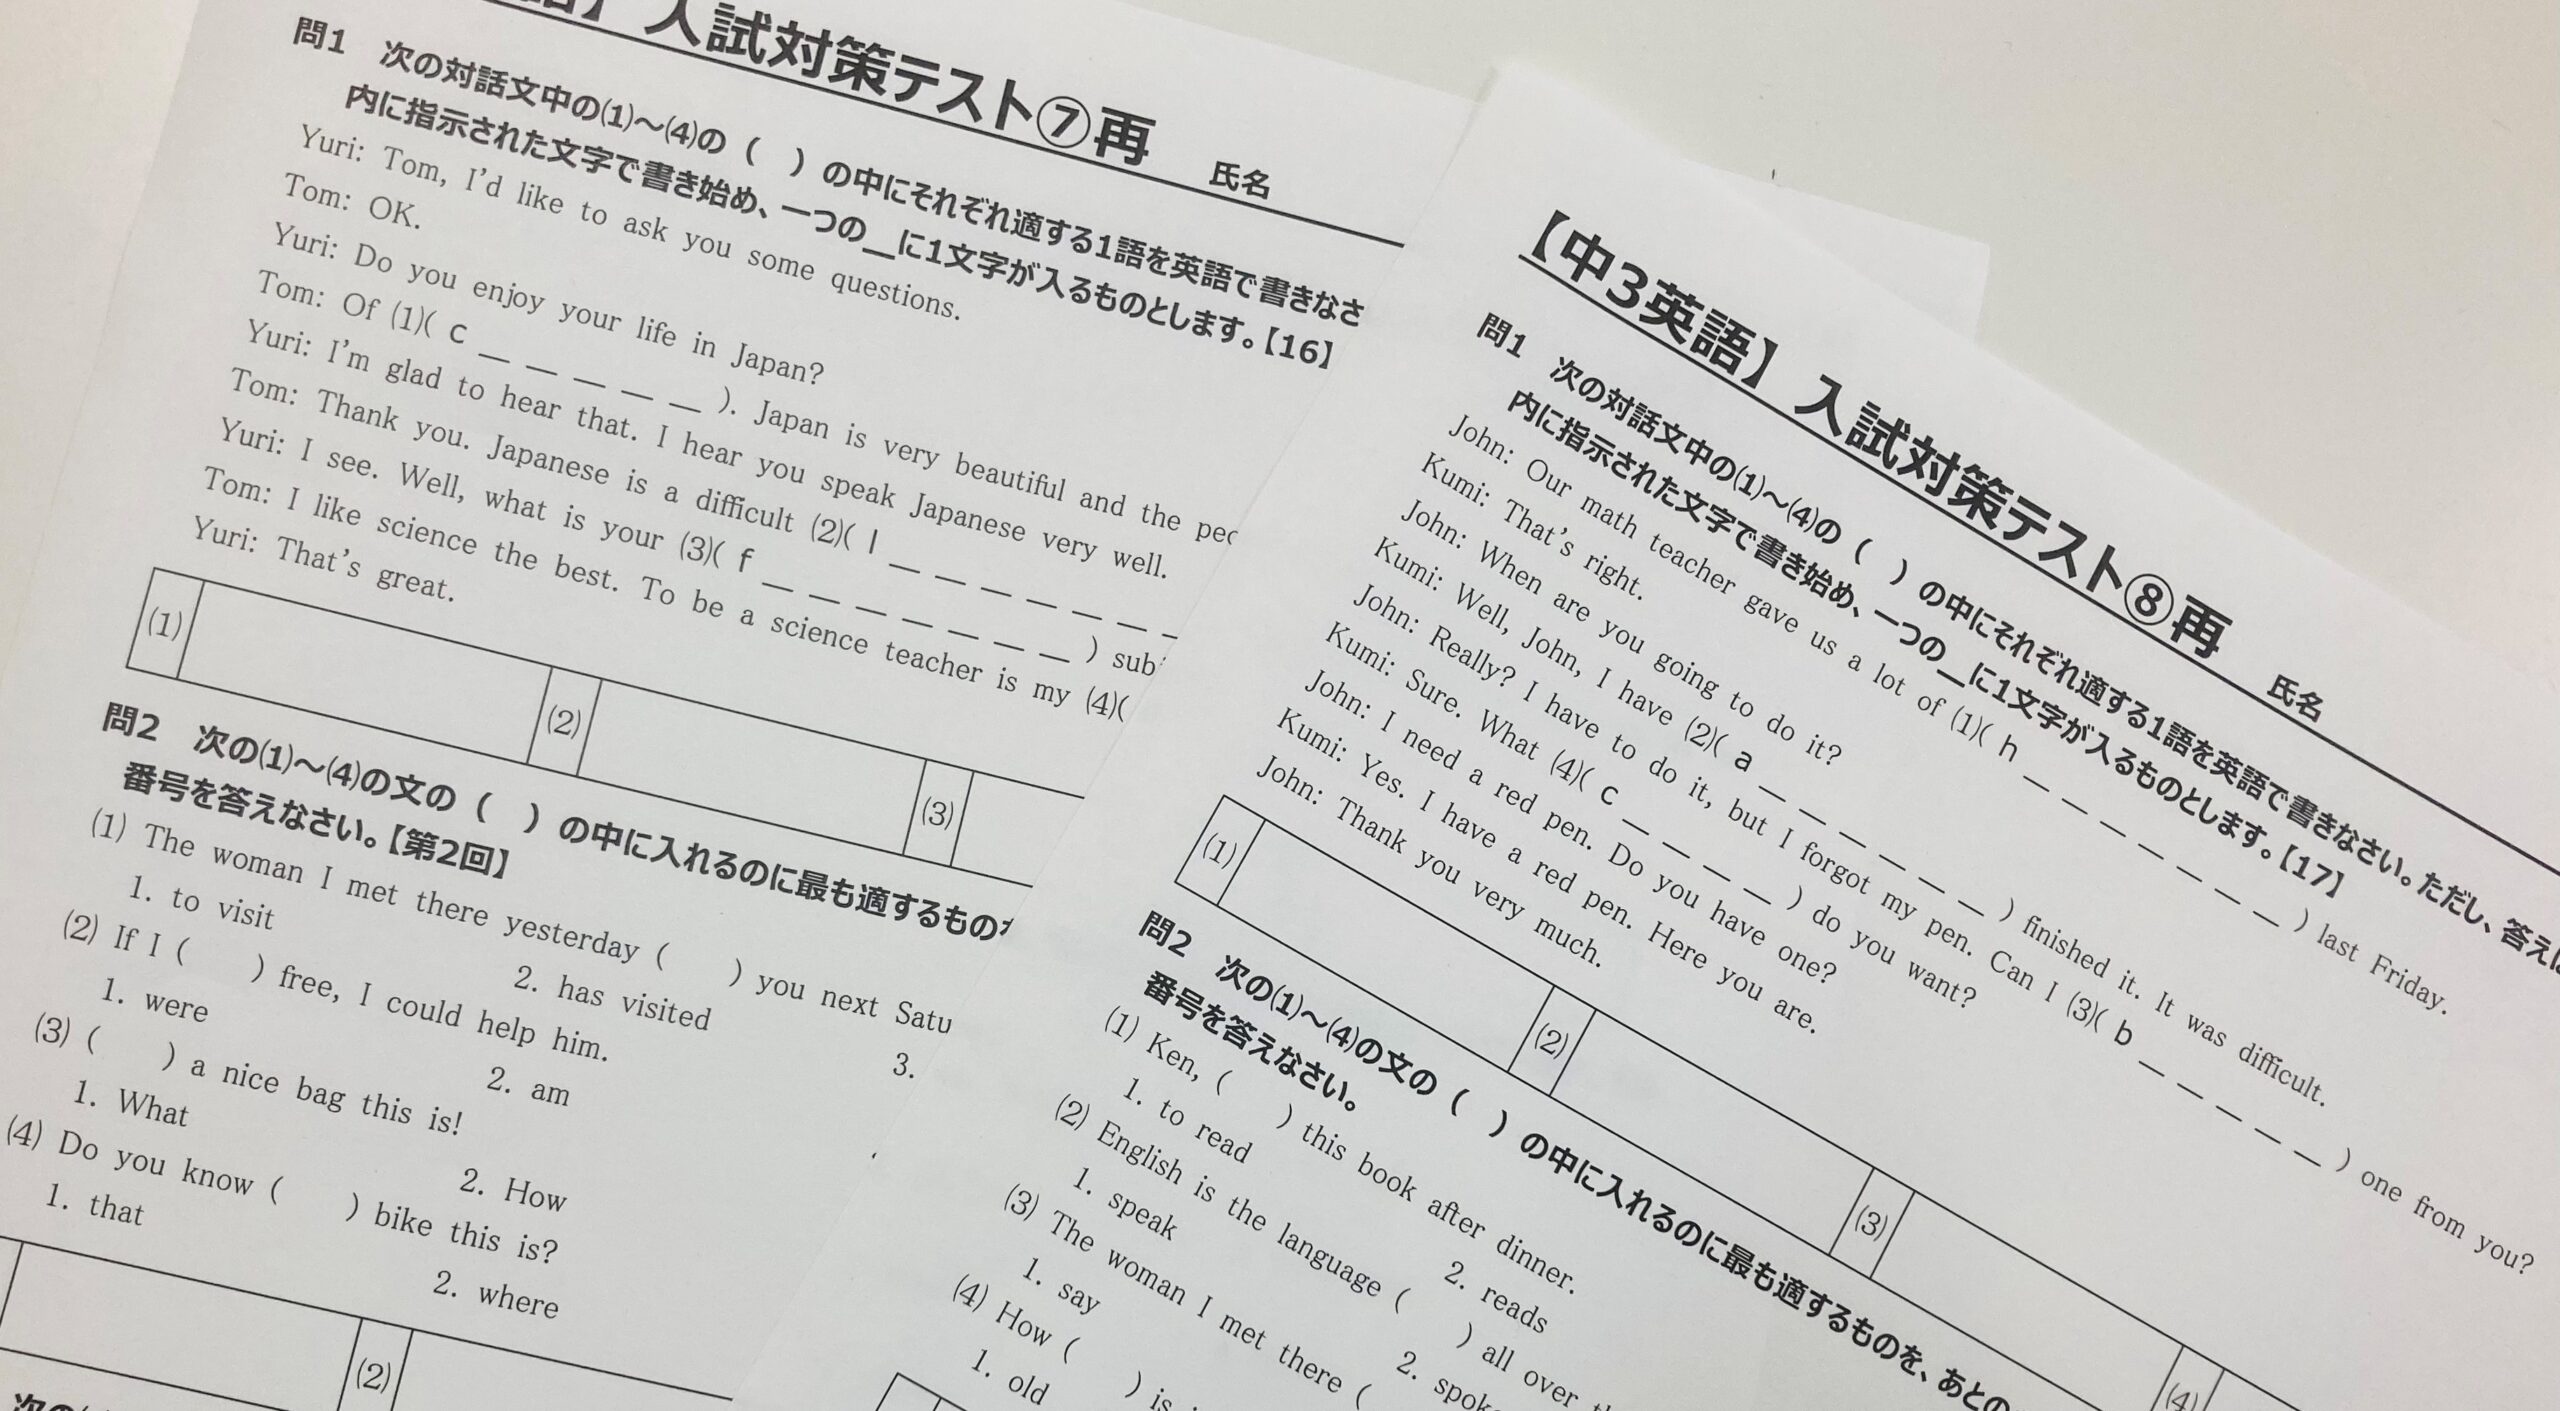 】入試対策テスト⑦再 氏名
問1 次の対話文中の(1)～(4)の（ ）の中にそれぞれ適する1語を英語で書きなさ
内に指示された文字で書き始め、一つの＿に1文字が入るものとします。【16】
Yuri: Tom, I'd like to ask you some questions.
Tom: OK.
Yuri: Do you enjoy your life in Japan?
Tom: Of (1)( c _ _ _ _ _ ). Japan is very beautiful and the
Yuri: I'm glad to hear that. I hear you speak Japanese very well.
Tom: Thank you. Japanese is a difficult (2)( l _ _ _ _ _ _ _
Yuri: I see. Well, what is your (3)( f _ _ _ _ _ _ _ ) sub
Tom: I like science the best. To be a science teacher is my (4)(
Yuri: That's great.
(1) (2) (3)
問2 次の(1)～(4)の文の（ ）の中に入れるのに最も適するもの
番号を答えなさい。【第2回】
(1) The woman I met there yesterday ( ) you next Satu
1. to visit 2. has visited 3.
(2) If I ( ) free, I could help him.
1. were 2. am
(3) ( ) a nice bag this is!
1. What 2. How
(4) Do you know ( ) bike this is?
1. that 2. where
(2)
【中3英語】入試対策テスト⑧再 氏名
問1 次の対話文中の(1)～(4)の（ ）の中にそれぞれ適する1語を英語で書きなさい。ただし、答えは
内に指示された文字で書き始め、一つの＿に1文字が入るものとします。【17】
John: Our math teacher gave us a lot of (1)( h _ _ _ _ _ _ _ ) last Friday.
Kumi: That's right.
John: When are you going to do it?
Kumi: Well, John, I have (2)( a _ _ _ _ _ _ ) finished it. It was difficult.
John: Really? I have to do it, but I forgot my pen. Can I (3)( b _ _ _ _ _ ) one from you?
Kumi: Sure. What (4)( c _ _ _ _ ) do you want?
John: I need a red pen. Do you have one?
Kumi: Yes. I have a red pen. Here you are.
John: Thank you very much.
(1) (2) (3) (4)
問2 次の(1)～(4)の文の（ ）の中に入れるのに最も適するものを、あとの
番号を答えなさい。
(1) Ken, ( ) this book after dinner.
1. to read 2. reads
(2) English is the language ( ) all over
1. speak 2. spoke
(3) The woman I met there (
1. say
(4) How ( ) is
1. old